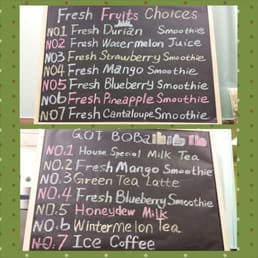 Fresh Fruits Choices
NO.1 Fresh Durian Smoothie
NO.2 Fresh Watermelon Juice
NO.3 Fresh Strawberry Smoothie
NO.4 Fresh Mango Smoothie
NO.5 Fresh Blueberry Smoothie
NO.6 Fresh Pineapple Smoothie
NO.7 Fresh Cantaloupe Smoothie
GOT BOBA
NO.1 House Special Milk Tea
NO.2 Fresh Mango Smoothie
NO.3 Green Tea Latte
NO.4 Fresh Blueberry Smoothie
NO.5 Honeydew Milk
NO.6 Wintermelon Tea
NO.7 Ice Coffee